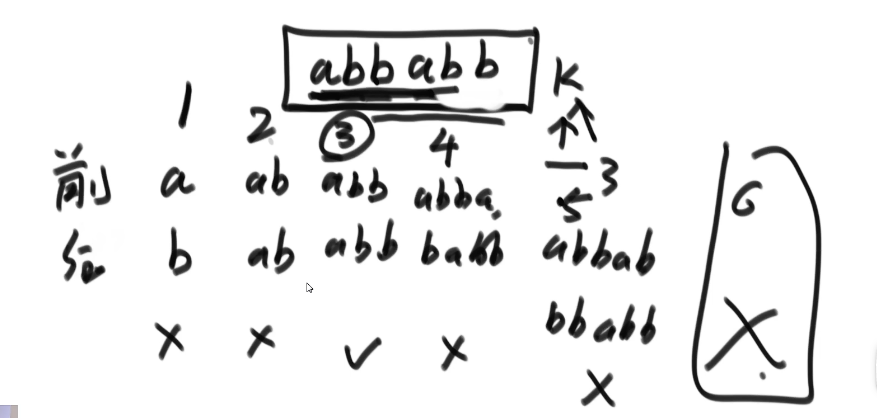 abbabb
K
1 2 3 4 3
前 a ab abb abba 5 6
后 b ab abb babb abbab
bbabb
× × ✓ × ×